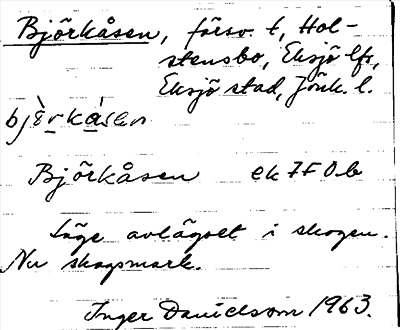 Björkåsen, försv. t, Hol-
stensbo, Eksjö lfs,
Eksjö stad, Jönk. l.
bjö̀rkåsen
Björkåsen ek 7F 0b
Läge avlägset i skogen.
Nu skogsmark.
Inger Danielsson 1963.